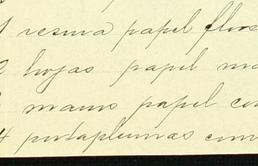 1 resma papel flor
2 hojas papel ma
2 manos papel co
4 portaplumas com